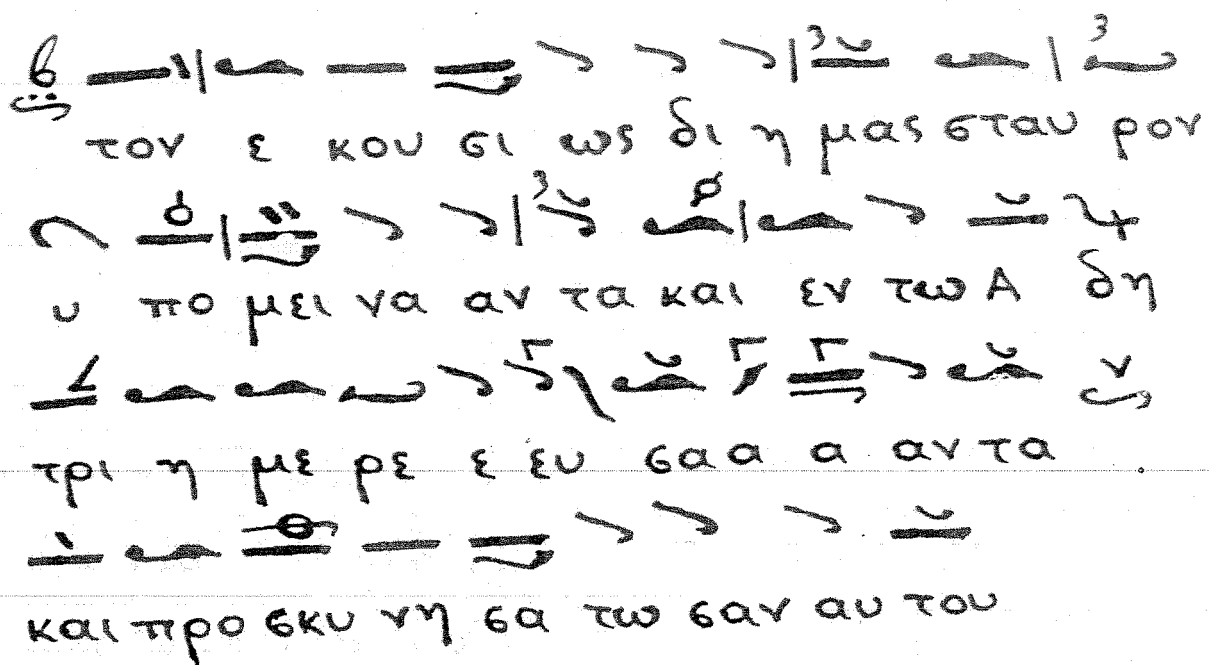 τον ε κου σι ως δι η μας σταυ ρον
υ πο μει να αν τα και εν τω Α δη
τρι η με ρε ε ευ σα α α αν τα .
και προ σκυ νη σα τω σαν αυ του